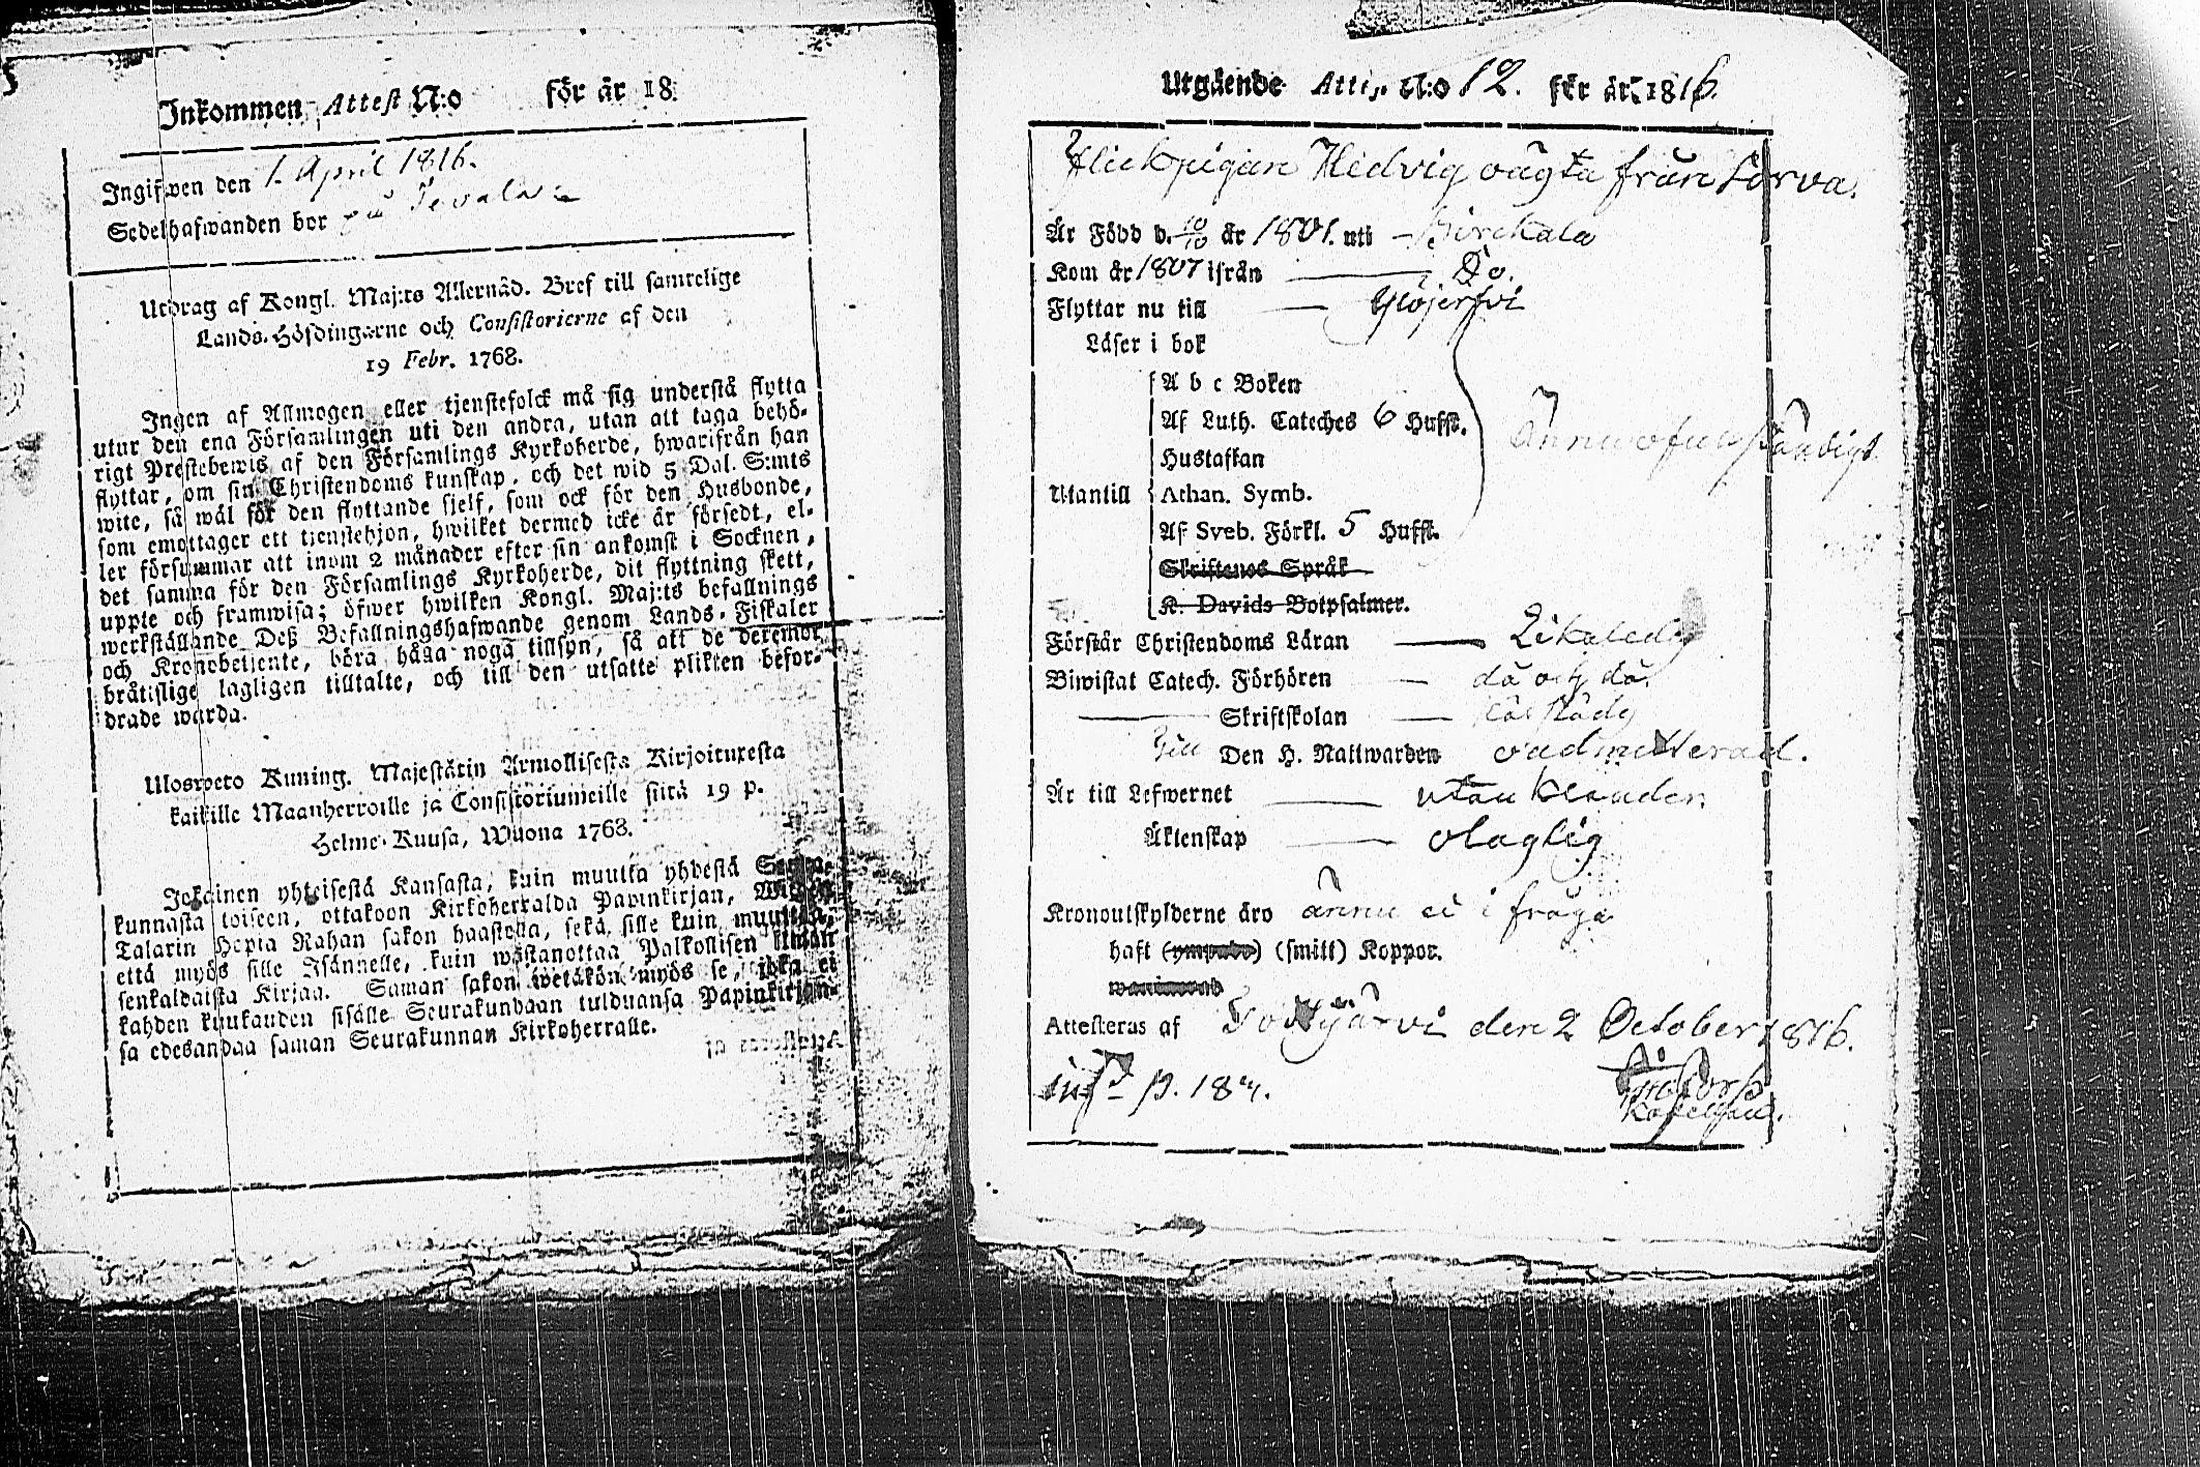 Inkommen Attest N:o för år 18
Ingifwen den 1. April 1816.
Sedelhafwanden bor på
Utdrag af Kongl. Maj:ts Allernåd. Bref till samtelige
Lands-Höfdingarne och Consistorierne af den
19 Febr. 1768.
Ingen af Allmogen eller tjenstefolck må sig understå flytta
utur den ena Församlingen uti den andra, utan att taga behö-
rigt Prestebewis af den Församlings Kyrkoherde, hwarifrån han
flyttar, om sin Christendoms kunskap, och det wid 5 Dal. S:mts
wite, så wäl för den flyttande sjelf, som ock för den Husbonde,
som emottager ett tjenstehjon, hwilket dermed icke är försedt, el-
ler försummar att inom 2 månader efter sin ankomst i Socknen,
det samma för den Församlings Kyrkoherde, dit flyttning skett,
uppte och framwisa; öfwer hwilken Kongl. Maj:ts befallnings
werkställande Deß Befallningshafwande genom Lands-Fiskaler
och Kronobetjente, böra hålla noga tillsyn, så att de deremot
bråtislige lagligen tilltalte, och till den utsatte plikten befor-
drade warda.
Ulosweto Kuning. Majestätin Armollisesta Kirjoituxesta
kaikille Maanherroille ja Consistoriumeille siitä 19 p.
Helme-Kuusa, Wuona 1768.
Jokainen yhteisestä Kansasta, kuin muutta yhdestä
kunnasta toiseen, ottakoon Kirkoherralda Papinkirjan,
Talarin Hopia Rahan sakon haastolla, sekä sille kuin
että myös sille Isännelle, kuin wastanottaa Palkollisen ilman
senkaldaista Kirjaa. Saman sakon wetäkön myös se, joka ei
kahden kuukauden sisälle Seurakundaan tulduansa Papinkirjan-
sa edesandaa saman Seurakunnan Kirkoherralle.
Utgående Attest N:o 12. för år 1816.
Flickpigan Hedvig från Sorva.
Är Född d. 10/10 år 1801. uti Birckala
Kom år 1807 ifrån Do.
Flyttar nu till Ylöjerfvi
Läser i bok
A b c Boken
Af Luth. Cateches 6 Hufst.
Hustaflan
Utantill Athan. Symb.
Af Sveb. Förkl. 5 Hufst.
Skriftenes Språk
K. Davids Botpsalmer.
Ännu ofullständigt
Förstår Christendoms Läran
Biwistat Catech. Förhören då och då.
Skriftskolan
Till Den H. Nattwarden oadmitterad.
Är till Lefwernet utan klander
Äktenskap olaglig
Kronoutskylderne äro ännu ei i fråga
haft (ympade) (smitt) Koppor.
Attesteras af den 2 October 1816.
p. 184.
Kapellan.